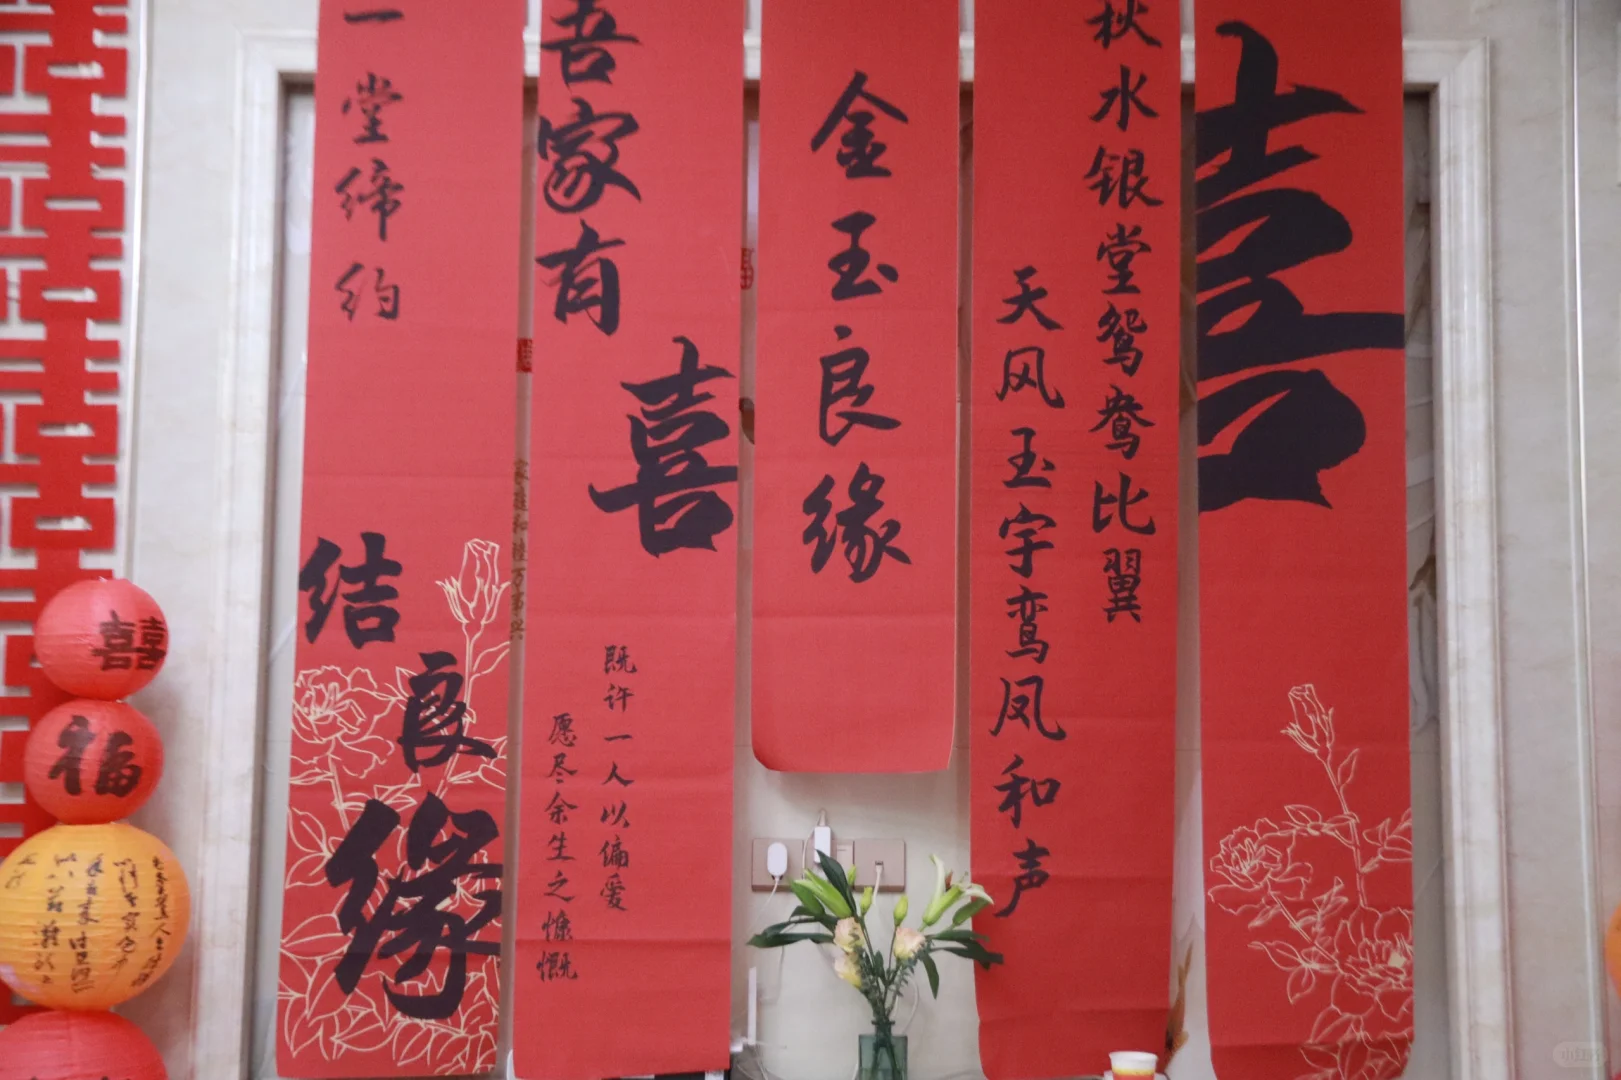 一堂缔约
结
良
缘
吾家有
喜
既许一人以偏爱
愿尽余生之慷慨
家庭和睦万事兴
金玉良缘
秋水银堂鸳鸯比翼
天风玉宇鸾凤和声
喜
囍
福
小红书